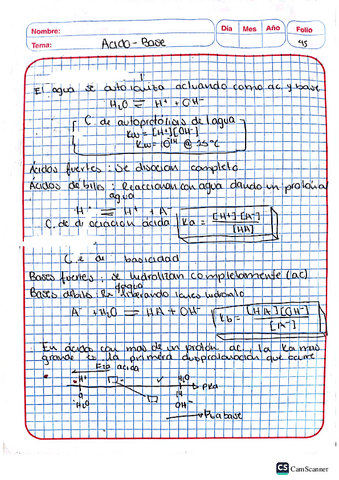 Nombre:
Día Mes Año Folio
Tema: Acido - Base 45
El agua se autoioniza actuando como ac. y base
H₂O ⇌ H⁺ + OH⁻
C de autoprotólisis del agua
Kw = [H⁺][OH⁻]
Kw = 10¹⁴ @ 25°C
Ácidos fuertes: Se disocian completo
Ácidos débiles: Reaccionan con agua dando un protón al
agua
H⁺ + A⁻
C. de di ociación ácida Ka = [H⁺][A⁻] / [HA]
C e de basicidad
Bases fuertes: se hidrolizan completamente (ac)
Bases débiles: liberando iones hidroxilo
A⁻ + H₂O ⇌ HA + OH⁻ Kb = [HA][OH⁻] / [A⁻]
En ácidos con mas de un protón ac, la Ka mas
grande es la primera que ocurre
Fza acida
H⁺ H₂O
pKa
0 14
H₂O OH⁻
Fza base
CS CamScanner